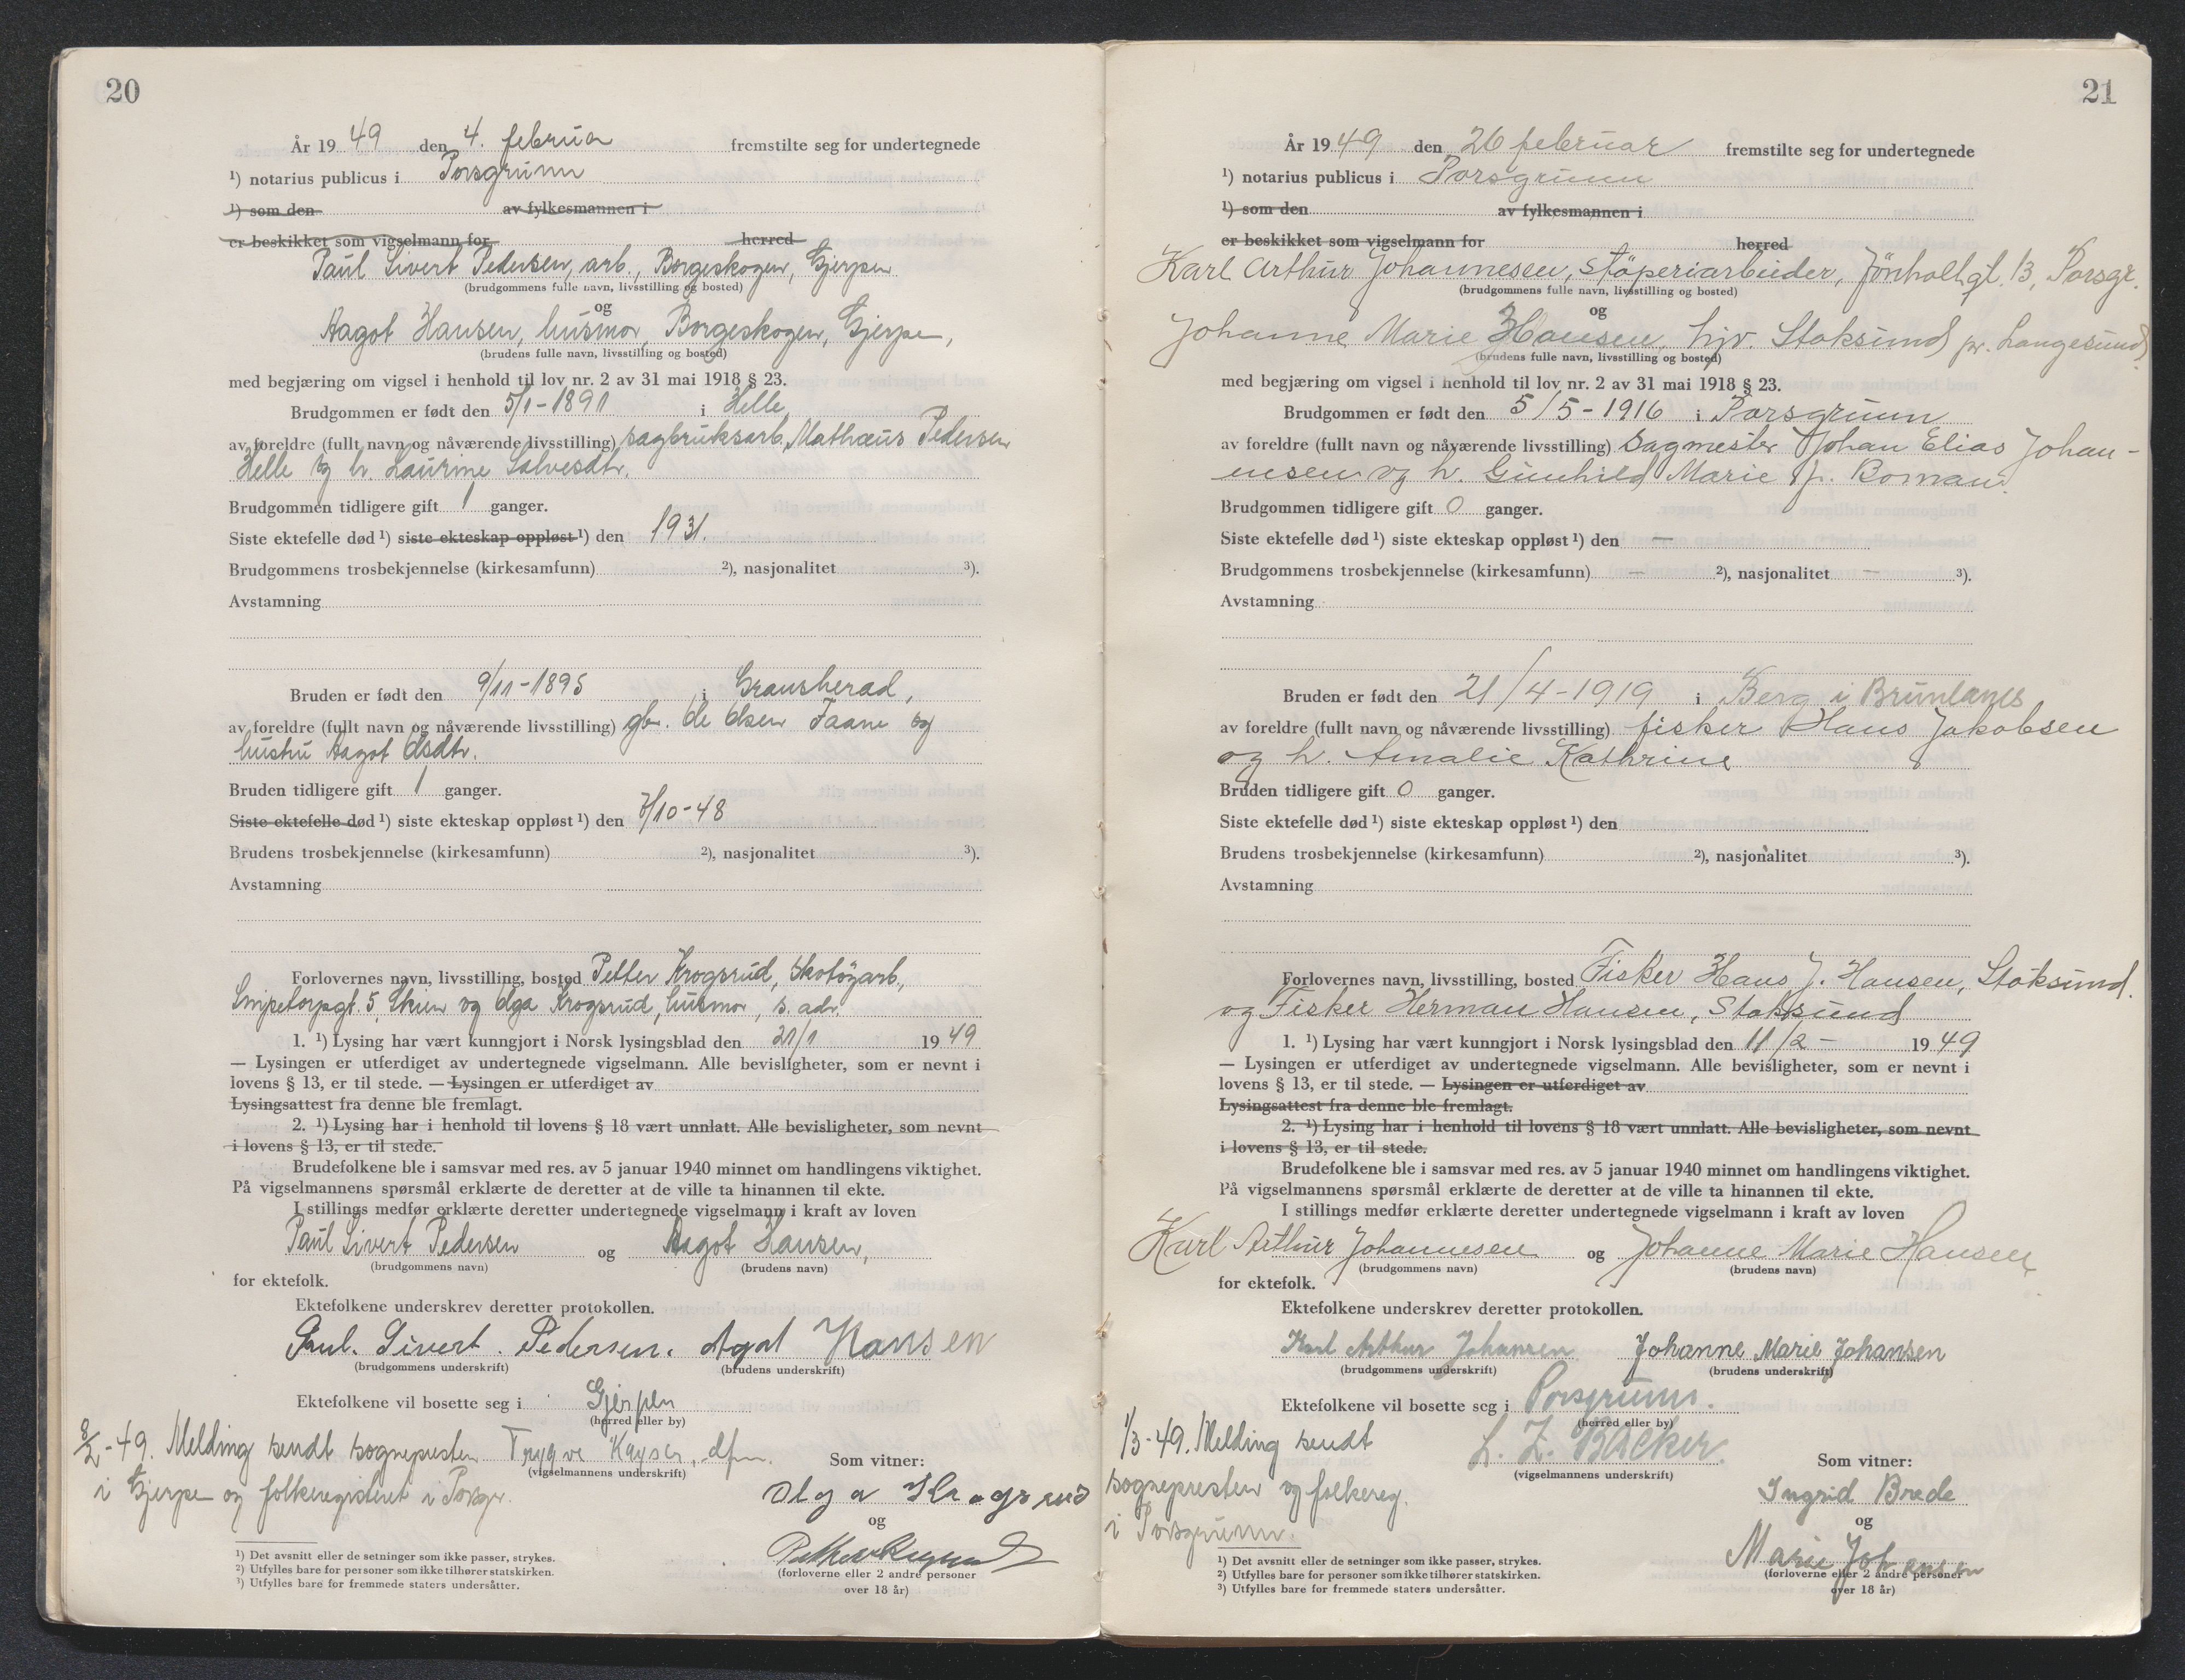 20
År 1949 den 4. februar fremstilte seg for undertegnede
¹) notarius publicus i Porsgrunn
¹) som den av fylkesmannen i
er beskikket som vigselmann for herred
Paul Sivert Pedersen, arb., Borgeskogen, Gjerpen
(brudgommens fulle navn, livsstilling og bosted)
og
Aagot Hansen, husmor, Borgeskogen, Gjerpen,
(brudens fulle navn, livsstilling og bosted)
med begjæring om vigsel i henhold til lov nr. 2 av 31 mai 1918 § 23.
Brudgommen er født den 5/1-1891 i Helle
av foreldre (fullt navn og nåværende livsstilling) sagbruksarb. Mathæus Pedersen
Helle og h. Laurine Salvesdtr.
Brudgommen tidligere gift 1 ganger.
Siste ektefelle død¹) siste ekteskap oppløst¹) den 1931.
Brudgommens trosbekjennelse (kirkesamfunn) ²), nasjonalitet ³).
Avstamning
Bruden er født den 9/11-1895 i Gransherad,
av foreldre (fullt navn og nåværende livsstilling) gbr. Ole Olsen Faane og
hustru Aagot Olsdtr.
Bruden tidligere gift 1 ganger.
Siste ektefelle død¹) siste ekteskap oppløst¹) den 7/10-48
Brudens trosbekjennelse (kirkesamfunn) ²), nasjonalitet ³).
Avstamning
Forlovernes navn, livsstilling, bosted Petter Krogsrud, skotøyarb.,
Snipetorpgt. 5, Skien og Olga Krogsrud, husmor, s. adr.
1. ¹) Lysing har vært kunngjort i Norsk lysingsblad den 21/1 1949
— Lysingen er utferdiget av undertegnede vigselmann. Alle bevisligheter, som er nevnt i
lovens § 13, er til stede. — Lysingen er utferdiget av
Lysingsattest fra denne ble fremlagt.
2. ¹) Lysing har i henhold til lovens § 18 vært unnlatt. Alle bevisligheter, som nevnt
i lovens § 13, er til stede.
Brudefolkene ble i samsvar med res. av 5 januar 1940 minnet om handlingens viktighet.
På vigselmannens spørsmål erklærte de deretter at de ville ta hinannen til ekte.
I stillings medfør erklærte deretter undertegnede vigselmann i kraft av loven
Paul Sivert Pedersen og Aagot Hansen,
(brudgommens navn) (brudens navn)
for ektefolk.
Ektefolkene underskrev deretter protokollen.
Paul. Sivert. Pedersen. Agot Hansen
(brudgommens underskrift) (brudens underskrift)
Ektefolkene vil bosette seg i Gjerpen
(herred eller by)
8/2-49. Melding sendt sognepresten Trygve Kayser, dfm.
(vigselmannens underskrift) Som vitner:
i Gjerpen og folkeregisteret i Porsgr.
Olga Krogsrud
og
Petter Krogsrud
(forloverne eller 2 andre personer
over 18 år)
¹) Det avsnitt eller de setninger som ikke passer, strykes.
²) Utfylles bare for personer som ikke tilhører statskirken.
³) Utfylles bare for fremmede staters undersåtter.
21
År 1949 den 26 februar fremstilte seg for undertegnede
¹) notarius publicus i Porsgrunn
¹) som den av fylkesmannen i
er beskikket som vigselmann for herred
Karl Arthur Johannesen, støperiarbeider, Jønholtgt. 13, Porsgr.
(brudgommens fulle navn, livsstilling og bosted)
og
Johanne Marie Hansen, hjv. Stoksund pr. Langesund.
(brudens fulle navn, livsstilling og bosted)
med begjæring om vigsel i henhold til lov nr. 2 av 31 mai 1918 § 23.
Brudgommen er født den 5/5-1916 i Porsgrunn
av foreldre (fullt navn og nåværende livsstilling) sagmester Johan Elias Johan-
ensen og h. Gunhild Marie f. Boman.
Brudgommen tidligere gift 0 ganger.
Siste ektefelle død¹) siste ekteskap oppløst¹) den —
Brudgommens trosbekjennelse (kirkesamfunn) — ²), nasjonalitet — ³).
Avstamning
Bruden er født den 21/4-1919 i Berg i Brunlanes
av foreldre (fullt navn og nåværende livsstilling) fisker Hans Jakobsen
og h. Amalie Kathrine
Bruden tidligere gift 0 ganger.
Siste ektefelle død¹) siste ekteskap oppløst¹) den
Brudens trosbekjennelse (kirkesamfunn) ²), nasjonalitet ³).
Avstamning
Forlovernes navn, livsstilling, bosted Fisker Hans J. Hansen, Stoksund.
og Fisker Herman Hansen, Stoksund
1. ¹) Lysing har vært kunngjort i Norsk lysingsblad den 11/2 - 1949
— Lysingen er utferdiget av undertegnede vigselmann. Alle bevisligheter, som er nevnt i
lovens § 13, er til stede. — Lysingen er utferdiget av
Lysingsattest fra denne ble fremlagt.
2. ¹) Lysing har i henhold til lovens § 18 vært unnlatt. Alle bevisligheter, som nevnt
i lovens § 13, er til stede.
Brudefolkene ble i samsvar med res. av 5 januar 1940 minnet om handlingens viktighet.
På vigselmannens spørsmål erklærte de deretter at de ville ta hinannen til ekte.
I stillings medfør erklærte deretter undertegnede vigselmann i kraft av loven
Karl Arthur Johannesen og Johanne Marie Hansen
(brudgommens navn) (brudens navn)
for ektefolk.
Ektefolkene underskrev deretter protokollen.
Karl Arthur Johansen Johanne Marie Johansen
(brudgommens underskrift) (brudens underskrift)
Ektefolkene vil bosette seg i Porsgrunn.
(herred eller by)
1/3-49. Melding sendt L. Z. Backer.
(vigselmannens underskrift) Som vitner:
sognepresten og folkereg.
i Porsgrunn.
Ingrid Brede
og
Marie Johansen
(forloverne eller 2 andre personer
over 18 år)
¹) Det avsnitt eller de setninger som ikke passer, strykes.
²) Utfylles bare for personer som ikke tilhører statskirken.
³) Utfylles bare for fremmede staters undersåtter.